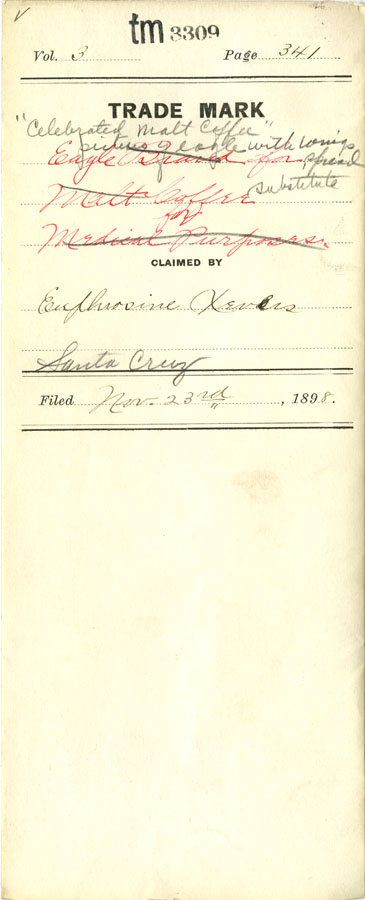 tm 3309
Vol. 3 Page 341
TRADE MARK
"Celebrated Malt Coffee"
picture of eagle with wings spread
Eagle Brand for
Malt Coffee substitute
for
Medical Purposes.
CLAIMED BY
Euphrosine Xevers
Santa Cruz
Filed Nov. 23rd, 1898.